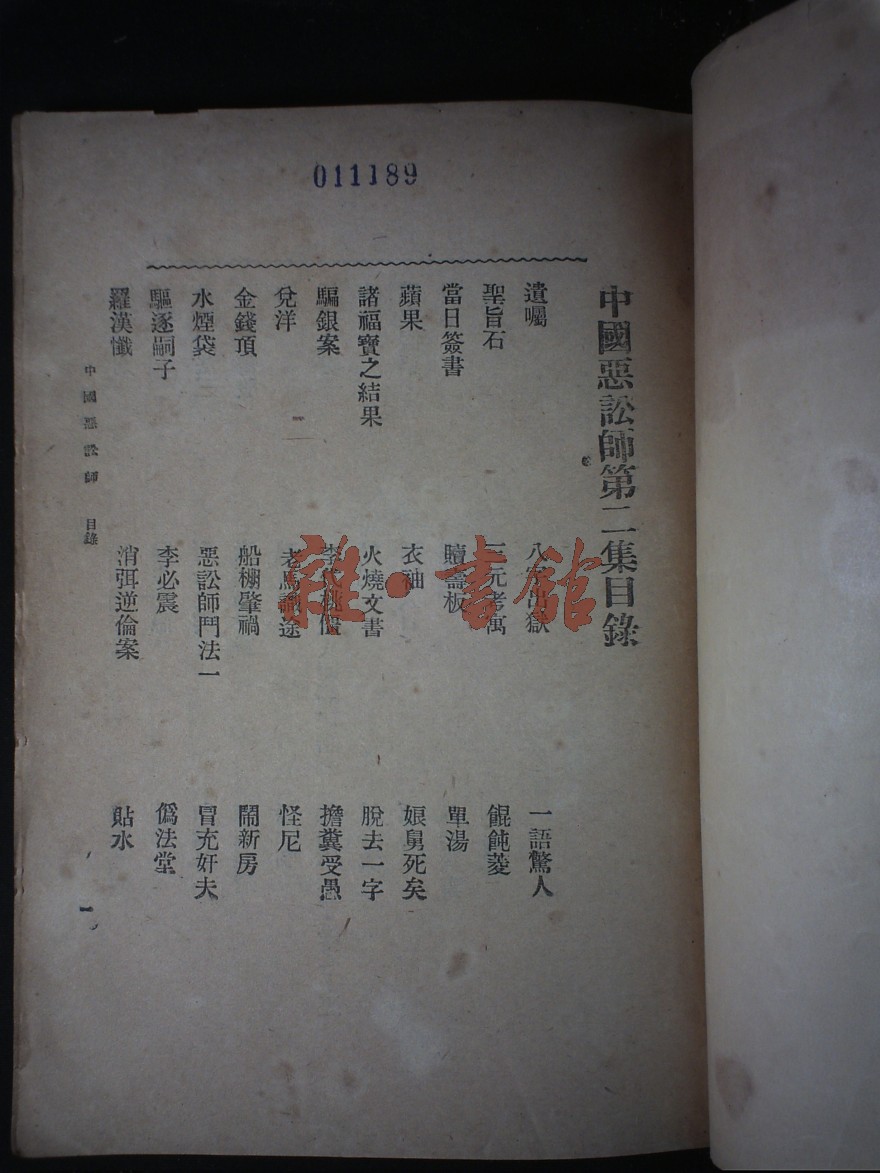 011189
中國惡訟師第二集目錄
遺囑
八字出獄
一語驚人
聖旨石
一元考寓
餛飩菱
當日簽書
贖壽板
單湯
蘋果
衣袖
娘舅死矣
諸福寶之結果
火燒文書
脫去一字
騙銀案
擔糞受愚
兌洋
老馬識途
怪尼
金錢項
船棚肇禍
鬧新房
水煙袋
惡訟師鬥法一
冒充奸夫
驅逐嗣子
李必震
偽法堂
羅漢懺
消弭逆倫案
貼水
中國惡訟師 目錄
一
雜·書館